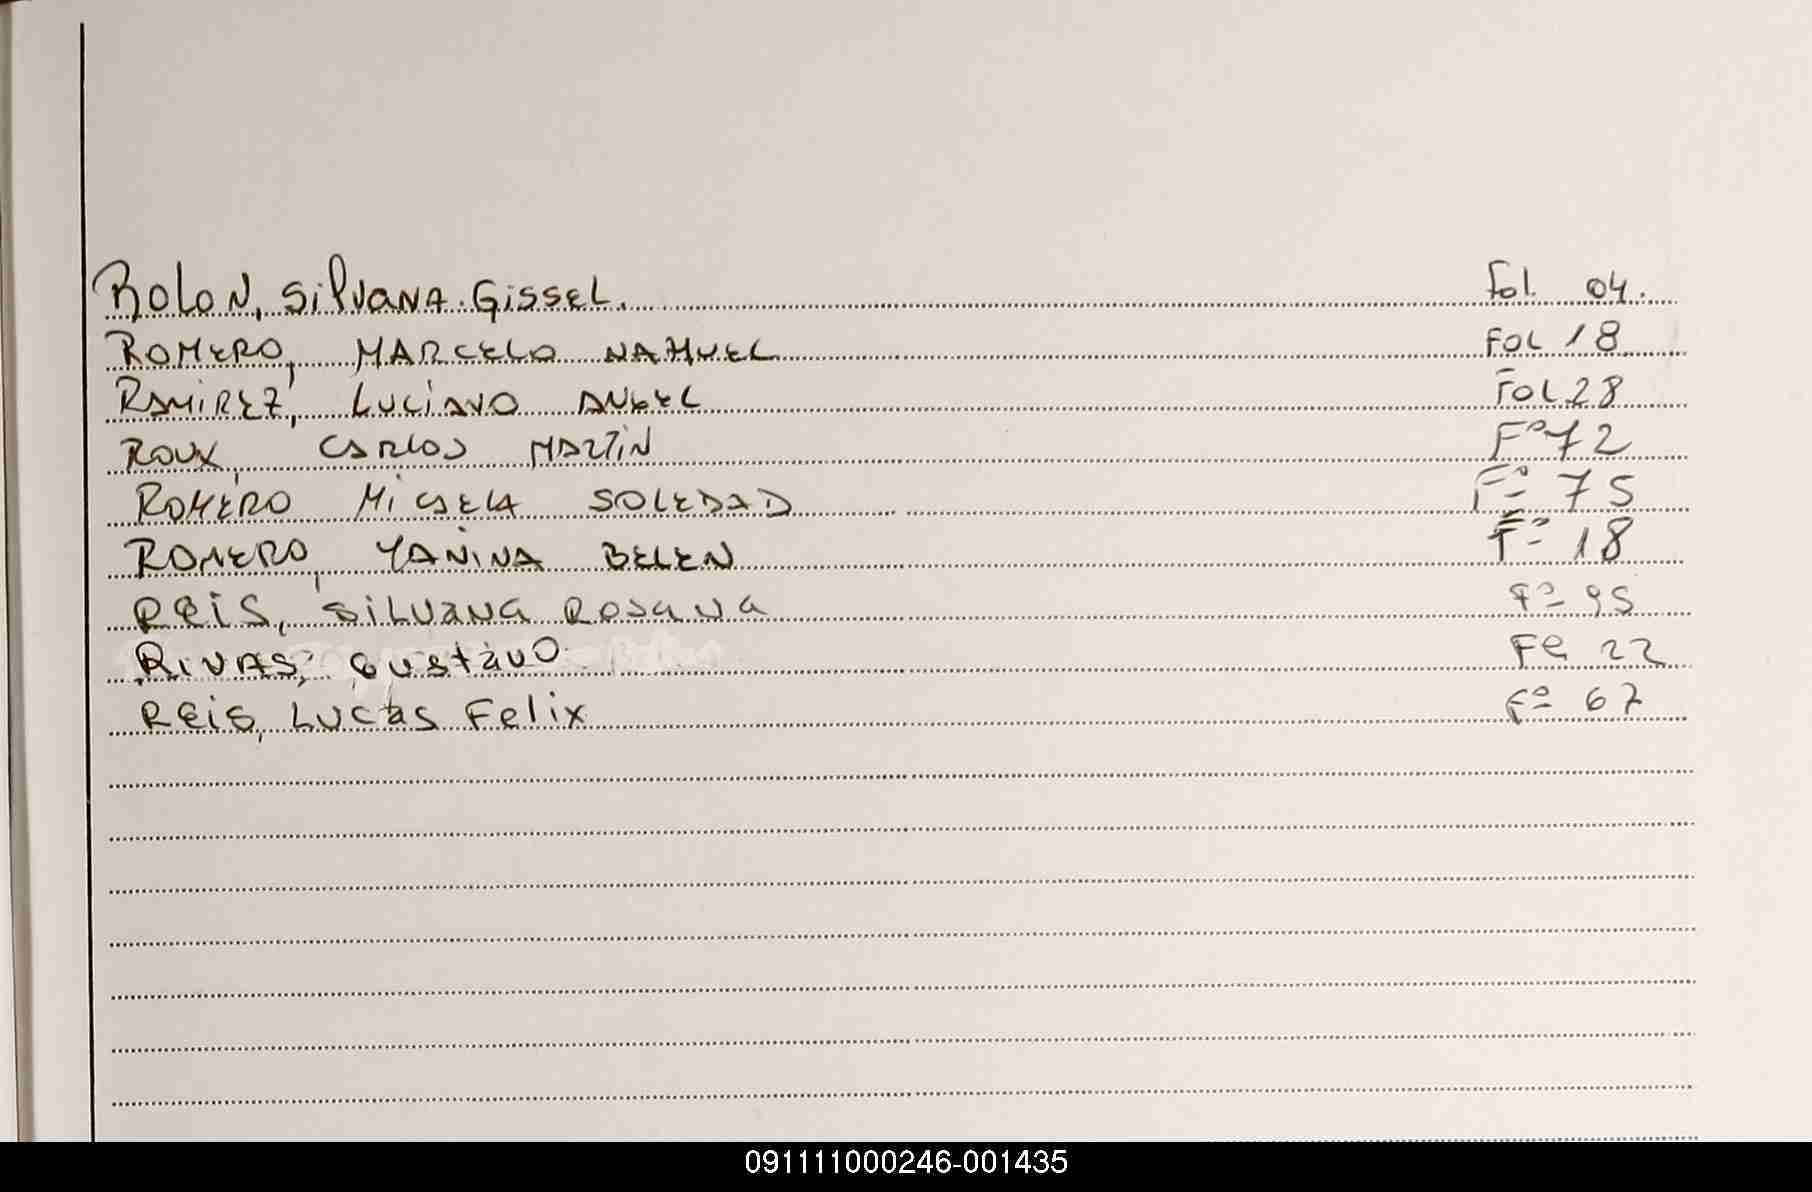 ROLON, SilVANA GISSEL. Fol. 04.
ROMERO, MARCELO NAHUEL FOL 18
RAMIREZ, LUCIANO ANGEL FOL 28
ROUX, CARLOS MARTIN Fº 72
ROMERO MICAELA SOLEDAD Fº 75
ROMERO, YANINA BELEN Fº 18
REIS, SILVANA ROSANA Fº 95
RIVAS, GUSTAVO Fº 22
REIS, LUCAS Felix Fº 67
091111000246-001435